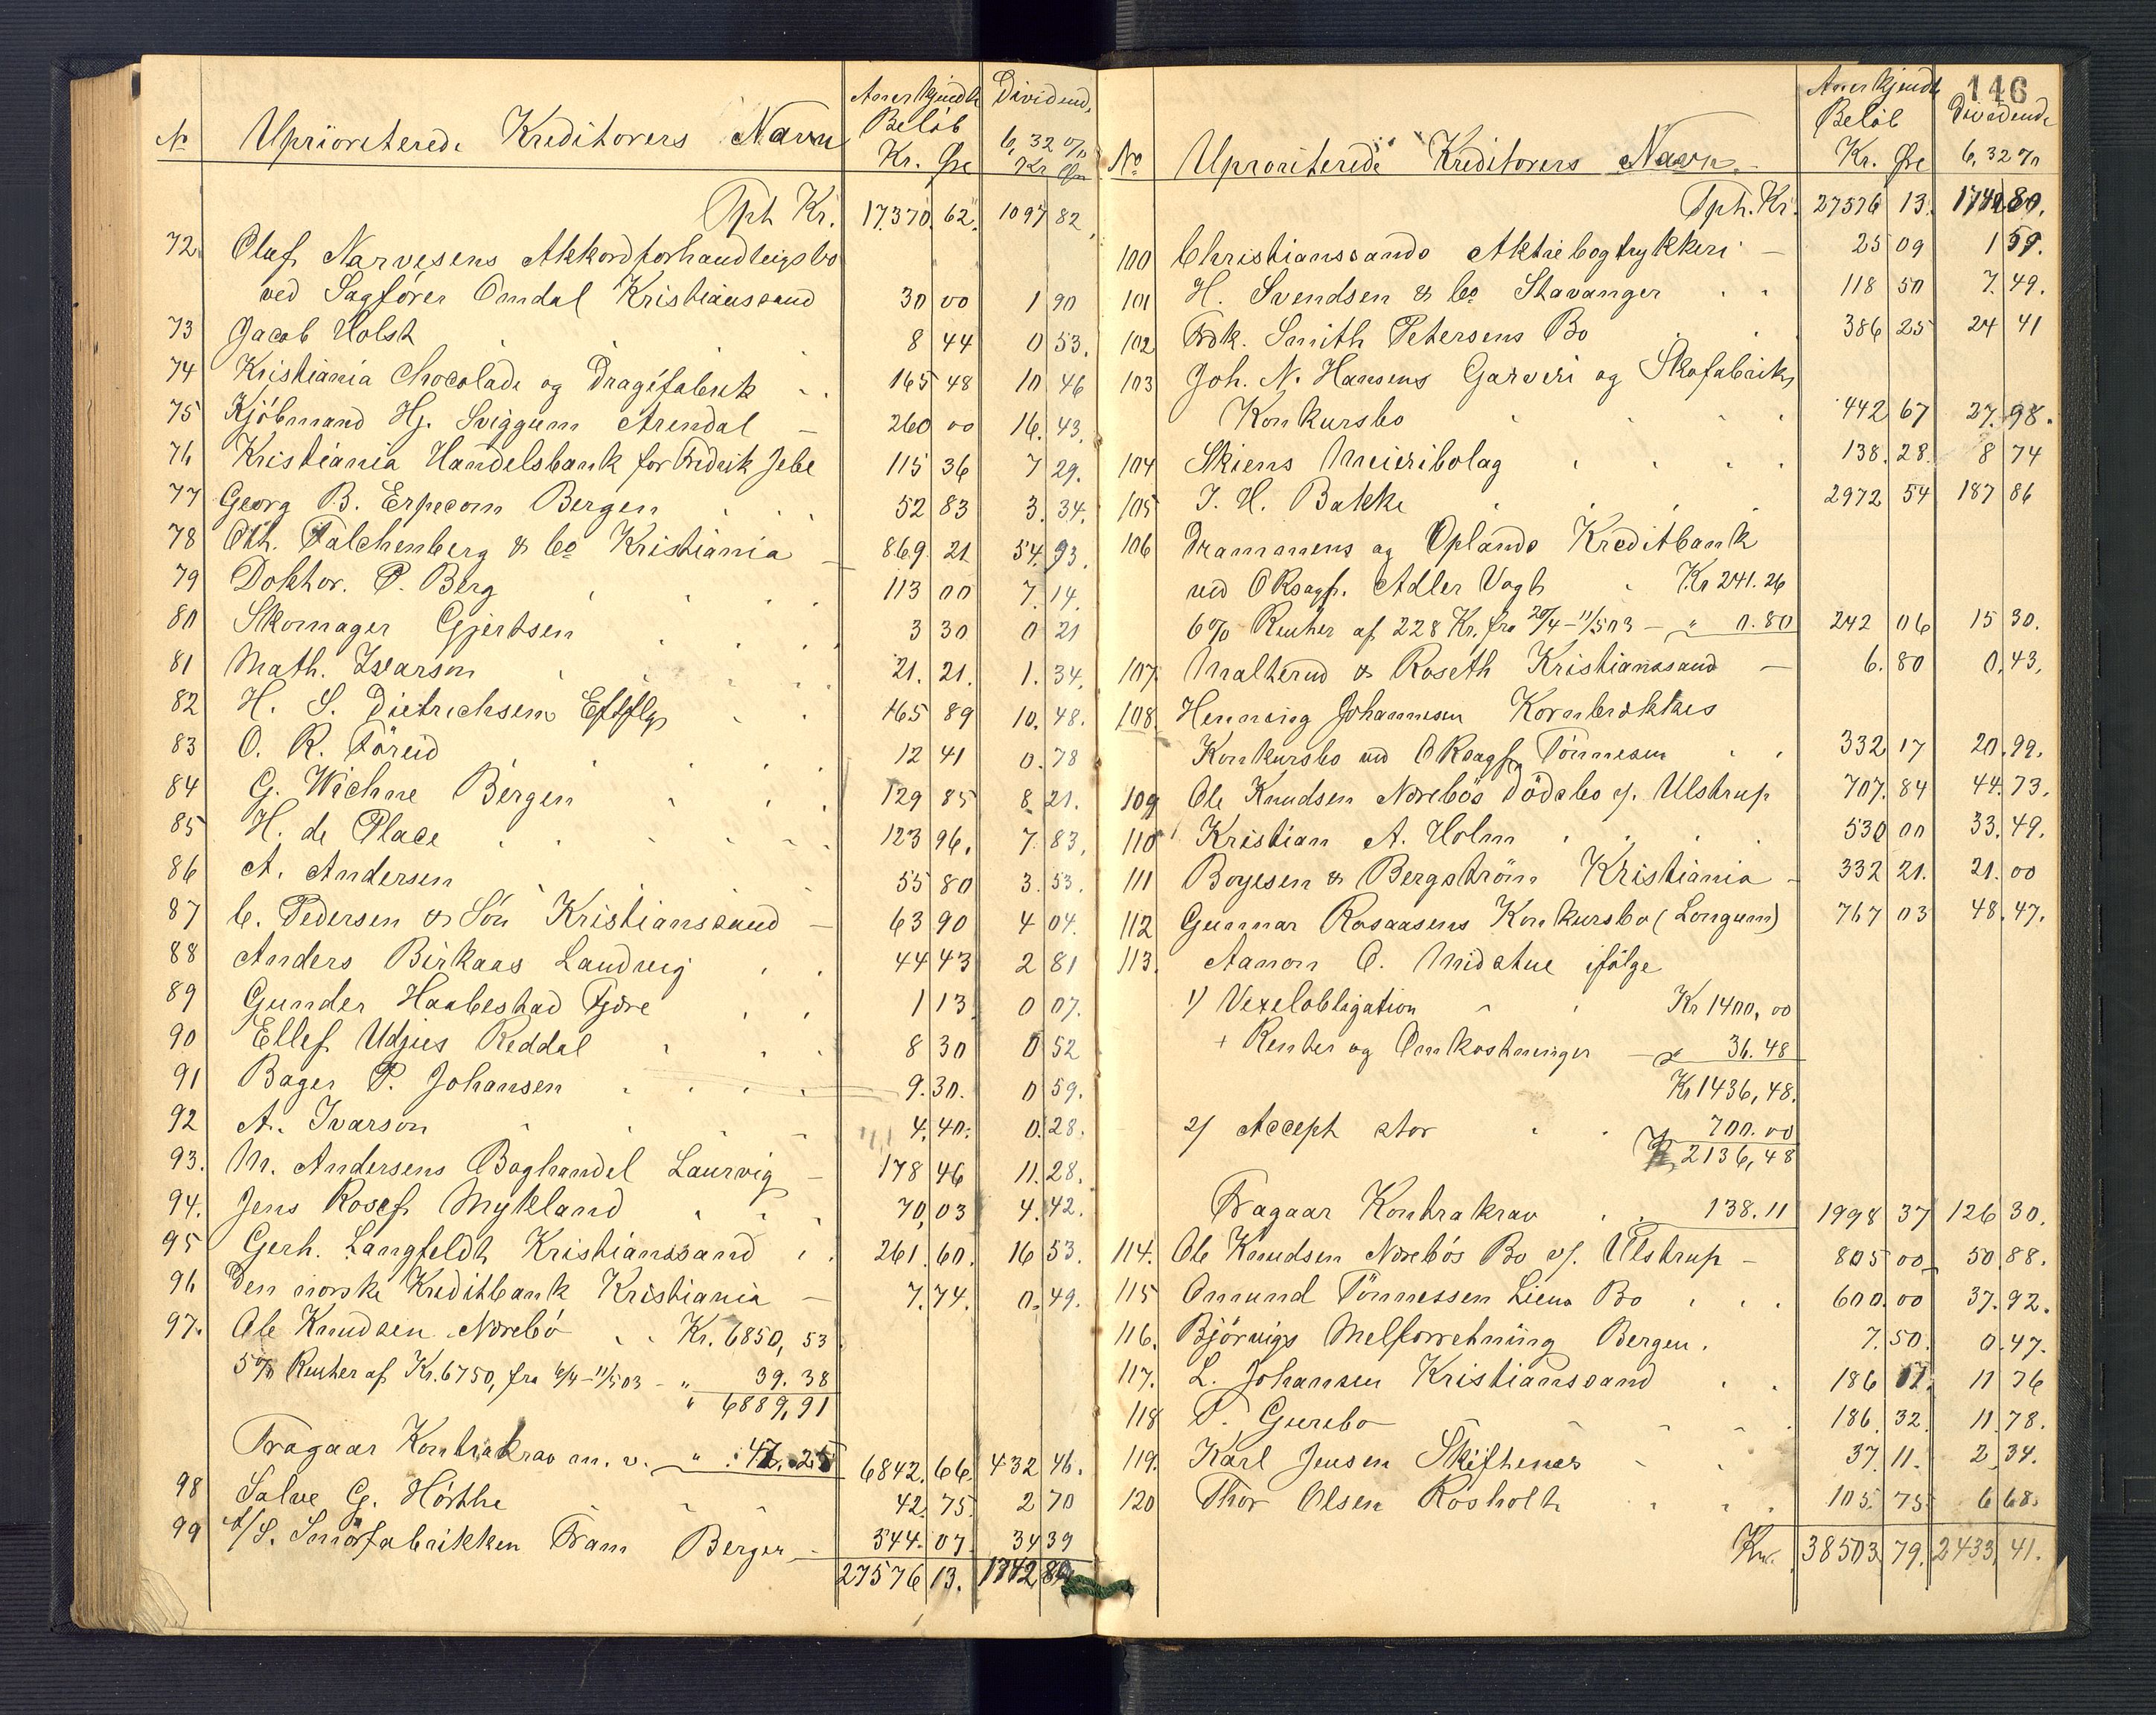 No Uprioreterede Kreditorers Navn Anerkjendte Beløb Kr. Øre Dividende 6,32 % Kr Øre
Tph Kr. 17370. 62. 1097 82
72. Oluf Narvesens Akkordforhandleigsbo
ved Sagfører Omdal Kristianssand 30 00 1 90
73 Jacob Holst 8 44 0 53.
74 Kristiania Chocolade og Dragéfabrik 165 48 10. 46
75 Kjøbmand Hj. Sviggum Arendal 260 00 16. 43.
76 Kristiania Handelsbank for Fredrik Jebe 115 36 7 29.
77 Georg B. Erpecom Bergen 52 83 3. 34.
78 Oth. Falchenberg & Co Kristiania 869. 21 54. 93.
79 Doktor. P. Berg 113 00 7. 14.
80 Skomager Gjertsen 3 30 0 21
81 Math. Ivarson 21. 21. 1. 34.
82 H. S. Dietrichsens Eftflgr 165 89 10. 48.
83 O. R. Föreid 12 41 0. 78
84 G. Wichne Bergen 129 85 8. 21.
85 H. de Place 123 96. 7 83,
86 A. Andersen 55 80 3. 53.
87 C. Pedersen & Søn Kristianssand 63 90 4 04.
88 Anders Birkaas Landvig 44 43 2 81
89 Gunder Haabestad Fjære 1 13 0 07.
90 Ellef Udjus Reddal 8 30 0 52
91 Bager P. Johansen 9. 30. 0 59.
92 A. Ivarson 4. 40. 0. 28.
93. M. Andersens Boghandel Laurvig 178 46 11. 28.
94. Jens Rosef Mykland 70, 03 4. 42.
95 Gerh. Langfeldt Kristianssand 261. 60. 16 53.
96 Den norske Kreditbank Kristiania 7. 74. 0. 49.
97. Ole Knudsen Norebö Kr. 6850, 53
5% Renter af Kr. 6750, fra 6/4 - 11/5 03 - " 39. 38
" 6889, 91
Fragaar Kontrakrav m. v. " 47. 25 6842. 66. 432 46.
98 Salve G. Hörthe 42. 75. 2 70
99 A/S. Smörfabrikken Fram Bergen 544. 07. 34 39
27576 13. 1742, 80
146
No Uprioriterede Kreditorers Navn Anerkjendte Beløb Kr. Øre Dividende 6,32 %
Tph. Kr. 27576 13. 1742 80.
100 Christianssands Aktiebogtrykkeri 25 09 1 59.
101 H. Svendsen & Co Stavanger 118 50 7. 49.
102 Fdk. Smith Petersens Bo 386 25 24 41
103 Joh. N. Hansens Garveri og Skofabriks
Konkursbo 442 67 27. 98.
104 Skiens Meieribolag 138. 28. 8 74
105 J. H. Bakke 2972 54 187 86
106 Drammens og Oplands Kreditbank
ved ORsagf. Adler Vogt Kr 241. 26
6% Renter af 228 Kr. fra 20/4 - 11/5 03 - " 0. 80 242 06 15 30.
107. Malterud & Roseth Kristianssand 6. 80 0, 43.
108. Henning Johannesen Kornbrekkes
Konkursbo ved ORsagf. Tönnesen 332 17 20. 99.
109 Ole Knudsen Norebös Dödsbo v/. Ulstrup 707. 84 44. 73.
110 Kristian A. Holm 530 00 33. 49.
111 Boyesen & Bergström Kristiania 332 21. 21. 00
112 Gunnar Rosaasens Konkursbo (Longum) 767 03 48. 47.
113. Aanon O. Midstue ifölge
1) Vexelobligation Kr 1400, 00
+ Renter og Omkostninger - " 36. 48
Kr 1436, 48.
2) Accept stor " 700. 00
Kr 2136, 48
Fragaar Kontrakrav 138. 11 1998 37 126 30.
114. Ole Knudsen Norebös Bo v/. Ulstrup 805 00 50. 88.
115 Omund Tönnessen Liens Bo 600. 00 37. 92.
116. Björvigs Melforretning Bergen. 7. 50. 0. 47.
117. L. Johansen Kristianssand 186 07. 11 76
118 T. Gurebo 186. 32 11. 78.
119. Karl Jensen Skiftenes 37. 11. 2. 34.
120 Thor Olsen Rosholt 105. 75. 6 68.
Kr. 38503 79. 2433, 41.